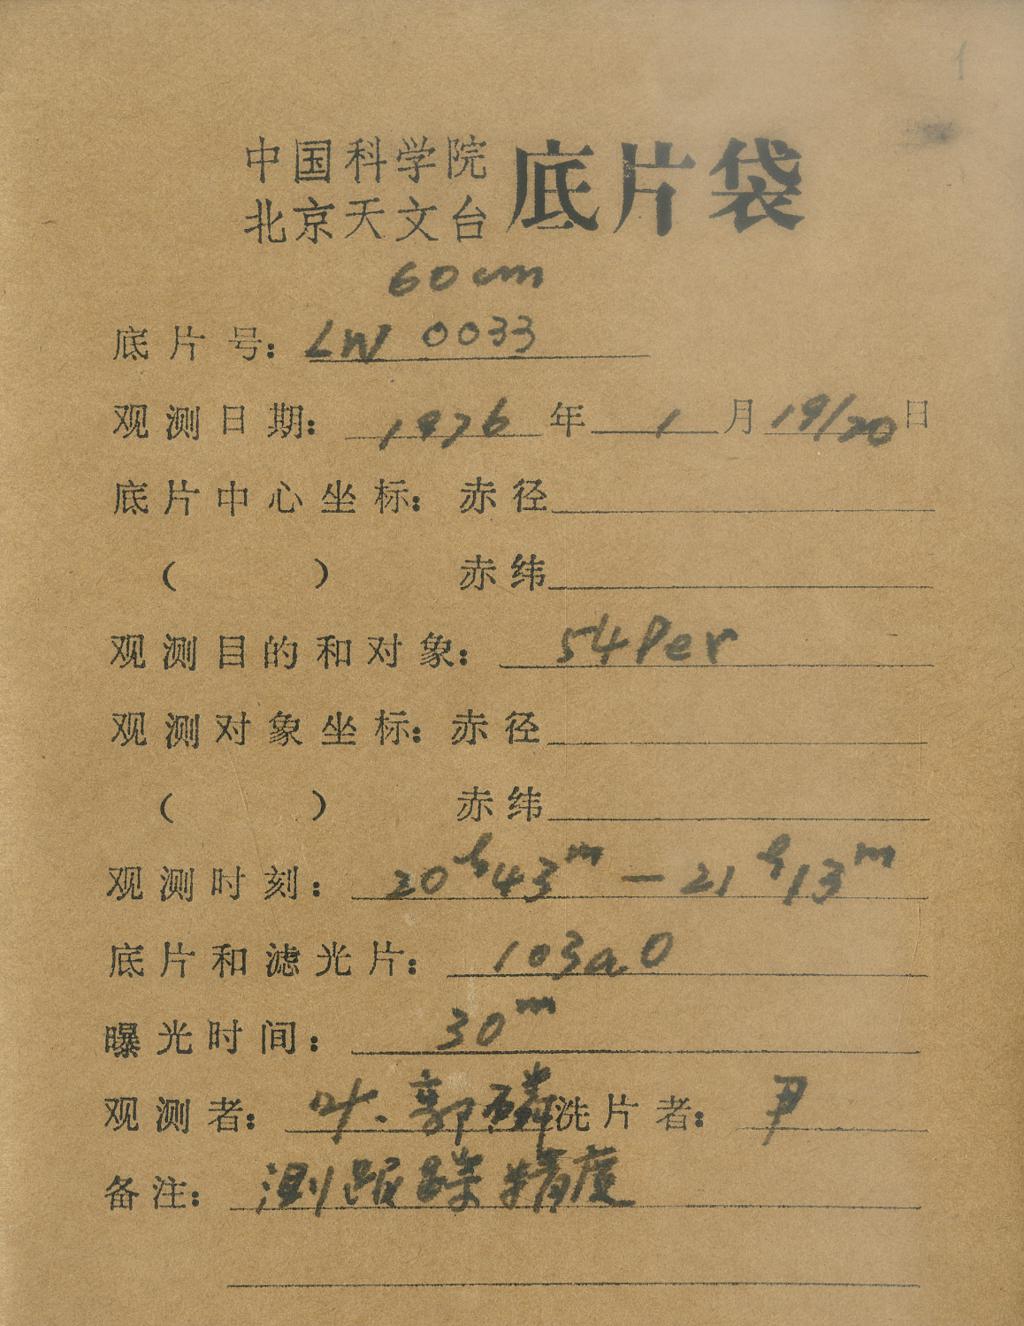 1
中国科学院
北京天文台
底片袋
60cm
底片号：LW 0033
观测日期：1976年1月19/20日
底片中心坐标：赤径
（ ） 赤纬
观测目的和对象：54Per
观测对象坐标：赤径
（ ） 赤纬
观测时刻：20h43m—21h13m
底片和滤光片：103aO
曝光时间：30m
观测者：叶.郭磷 洗片者：尹
备注：测跟踪精度